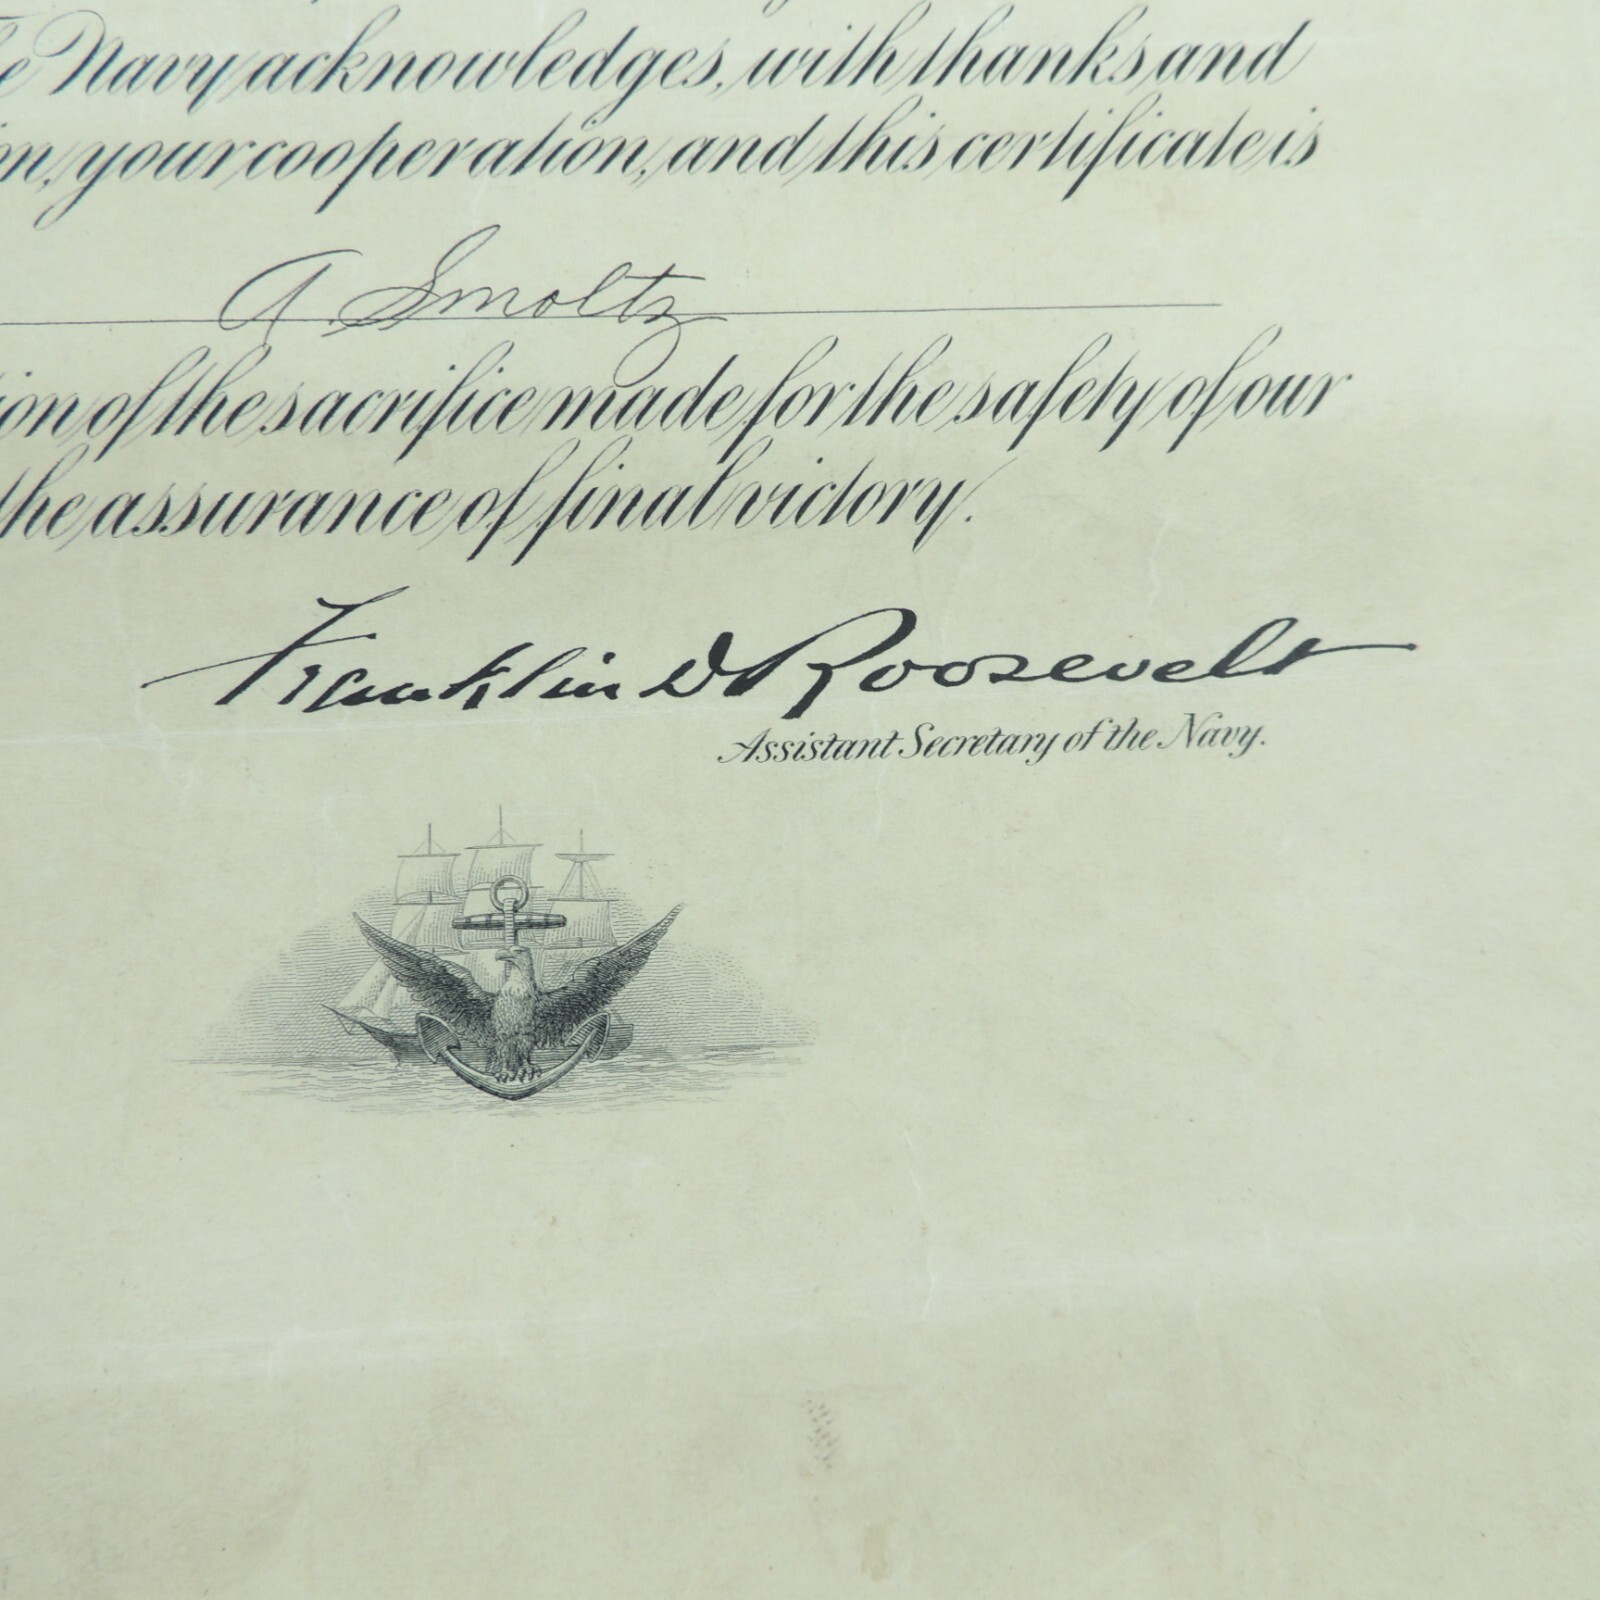 Navy acknowledges, with thanks and
your cooperation, and this certificate is
A. Smoltz
of the sacrifice made for the safety of our
the assurance of final victory.
Franklin D Roosevelt
Assistant Secretary of the Navy.